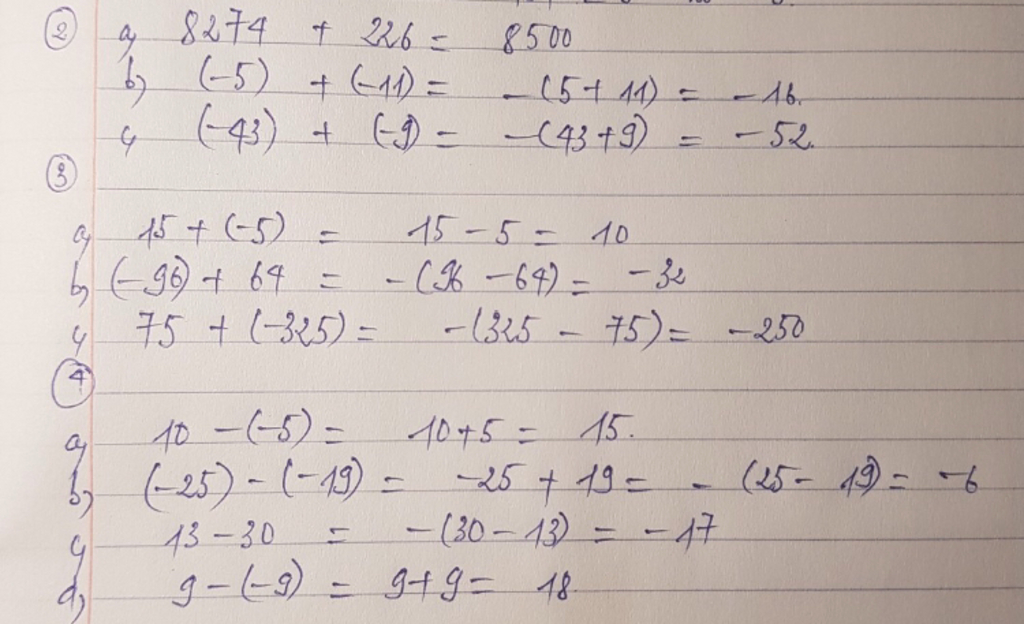 ② a) 8274 + 226 = 8500
b) (-5) + (-11) = -(5+11) = -16.
c) (-43) + (-9) = -(43+9) = -52.
③
a) 15 + (-5) = 15 - 5 = 10
b) (-96) + 64 = -(96 - 64) = -32
c) 75 + (-325) = -(325 - 75) = -250
④
a) 10 - (-5) = 10+5 = 15.
b) (-25) - (-19) = -25 + 19 = - (25 - 19) = -6
c) 13 - 30 = -(30 - 13) = -17
d) 9 - (-9) = 9+9 = 18.